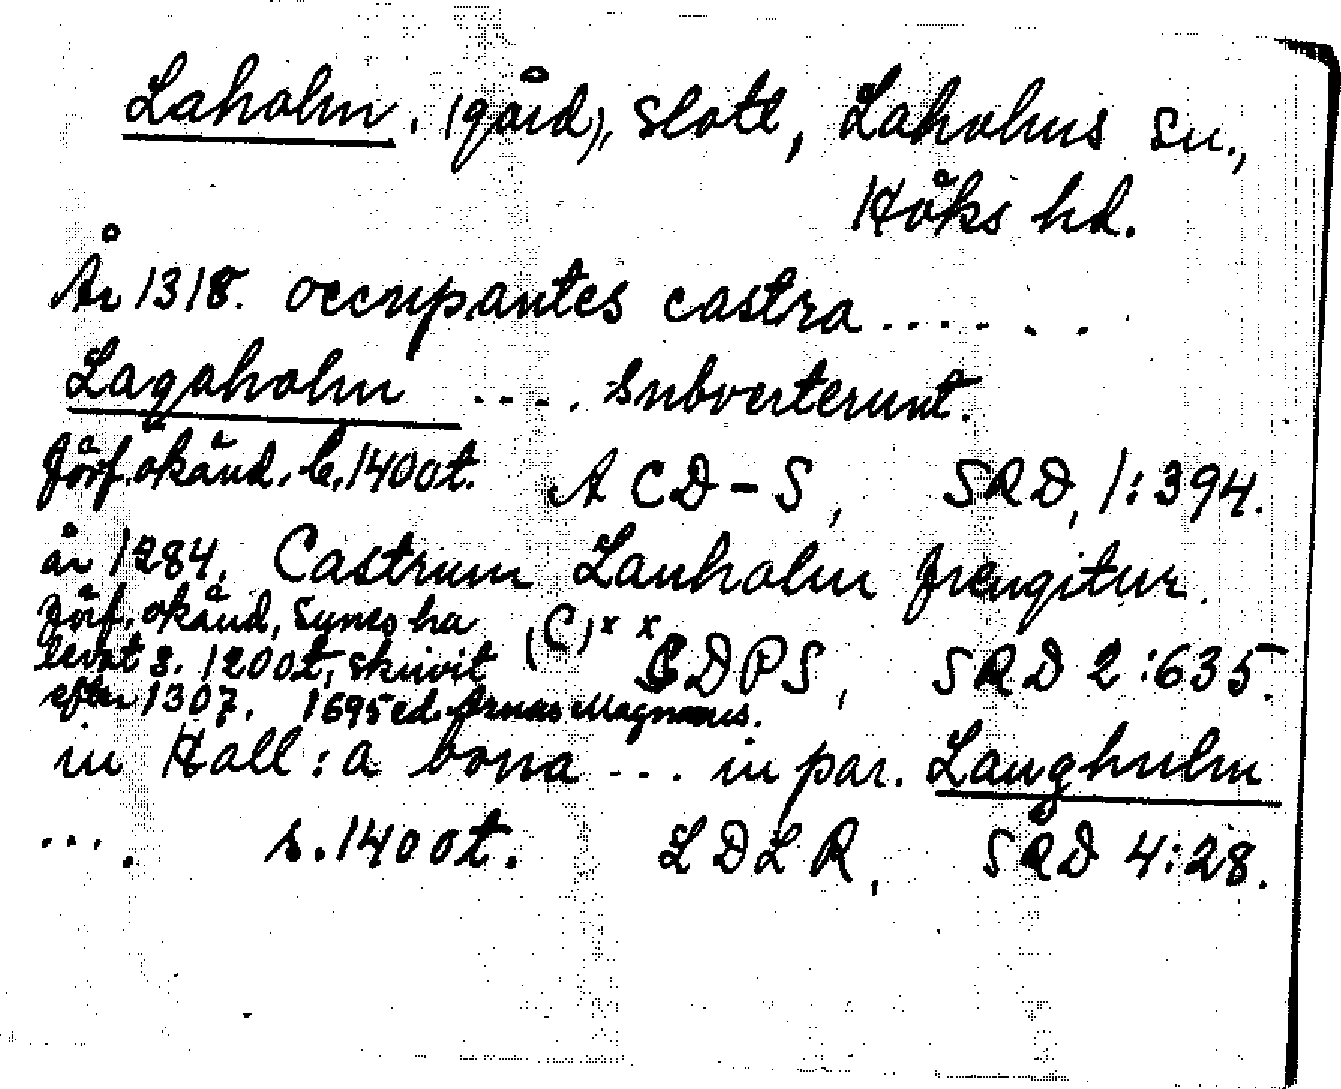 Laholm. (gård), slott, Laholms sn.,
Höks hd.
År 1318. occupantes castra . . . . . . .
Lagaholm . . . . subverterunt.
förf. okänd. b. 1400t. ACD-S, SRD, 1:394.
år 1284, Castrum Lauholm frengitur.
förf. okänd, synes ha (C)x x
levat s. 1200t, skrivit CDPS, SRD 2:635.
efter 1307. 1695 ed. Arnas Magnæus.
in Hall:a bona ... in par. Laughulm
.... s. 1400t. LDLR, SRD 4:28.